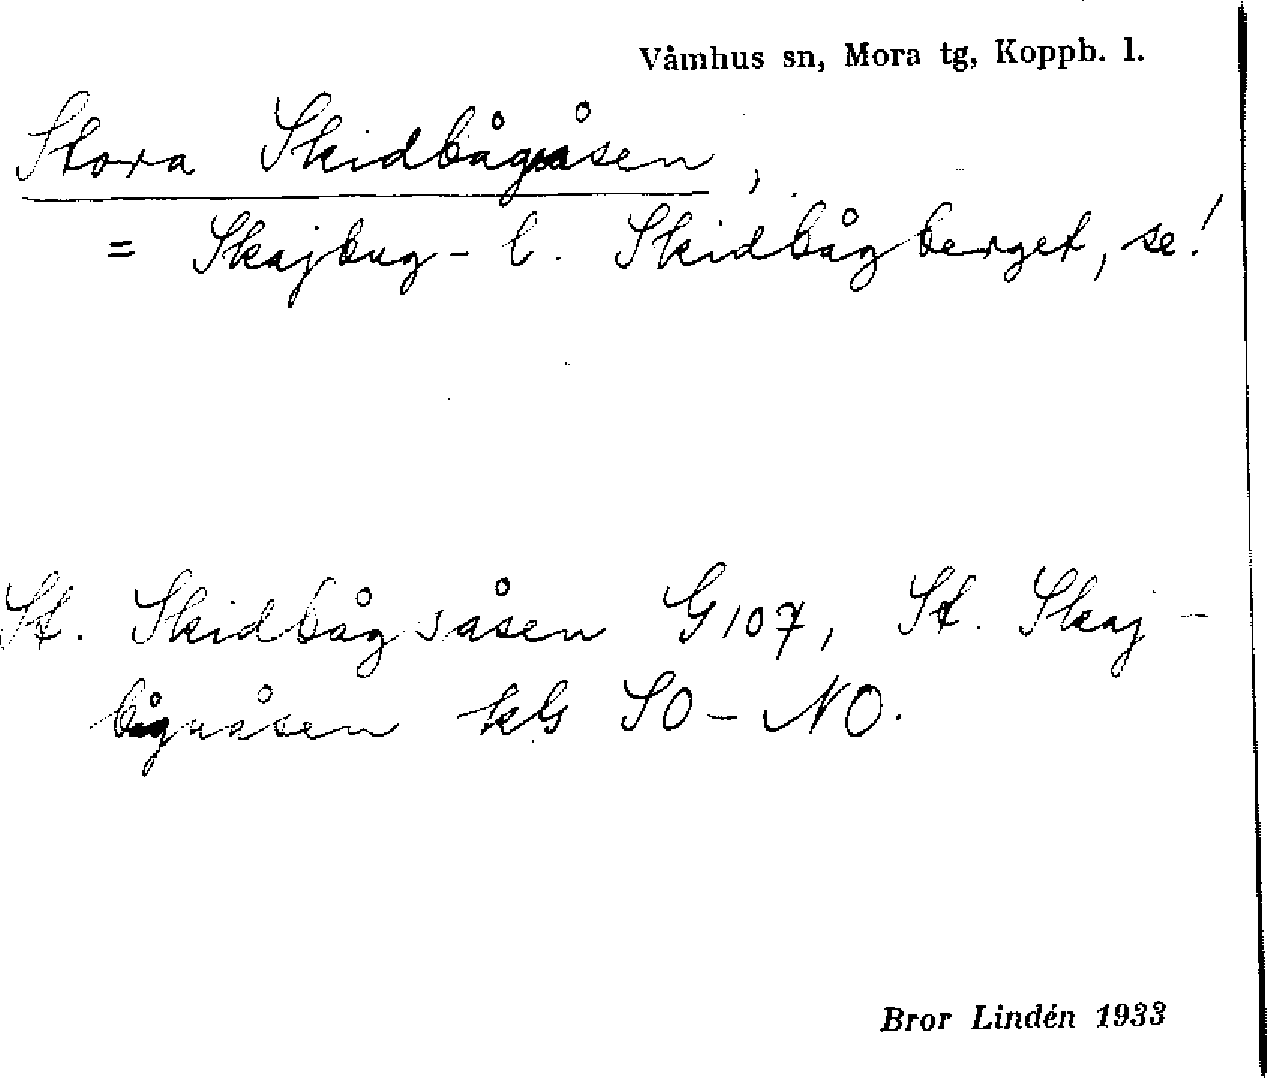 Våmhus sn, Mora tg, Koppb. l.
Stora Skidbågåsen,
= Skajbug- l. Skidbågberget, se!
St. Skidbågsåsen G107, St. Skaj-
bågnåsen SO-NO.
Bror Lindén 1933